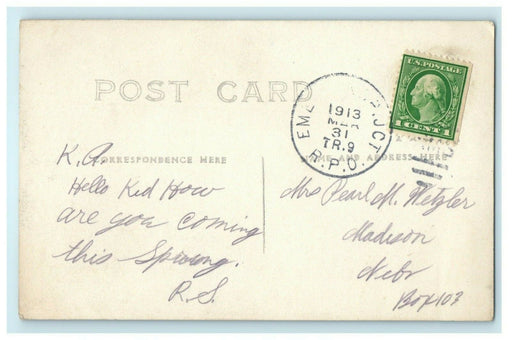 POST CARD
U.S. POSTAGE
1 CENT 1
1913
MAR
31
TR.9
R.P.O.
JCT
CORRESPONDENCE HERE
NAME AND ADDRESS HERE
K.A.
Hello Kid How
are you coming
this Spring.
R.S.
Mrs Pearl M. Wetzler
Madison
Nebr
Box 103